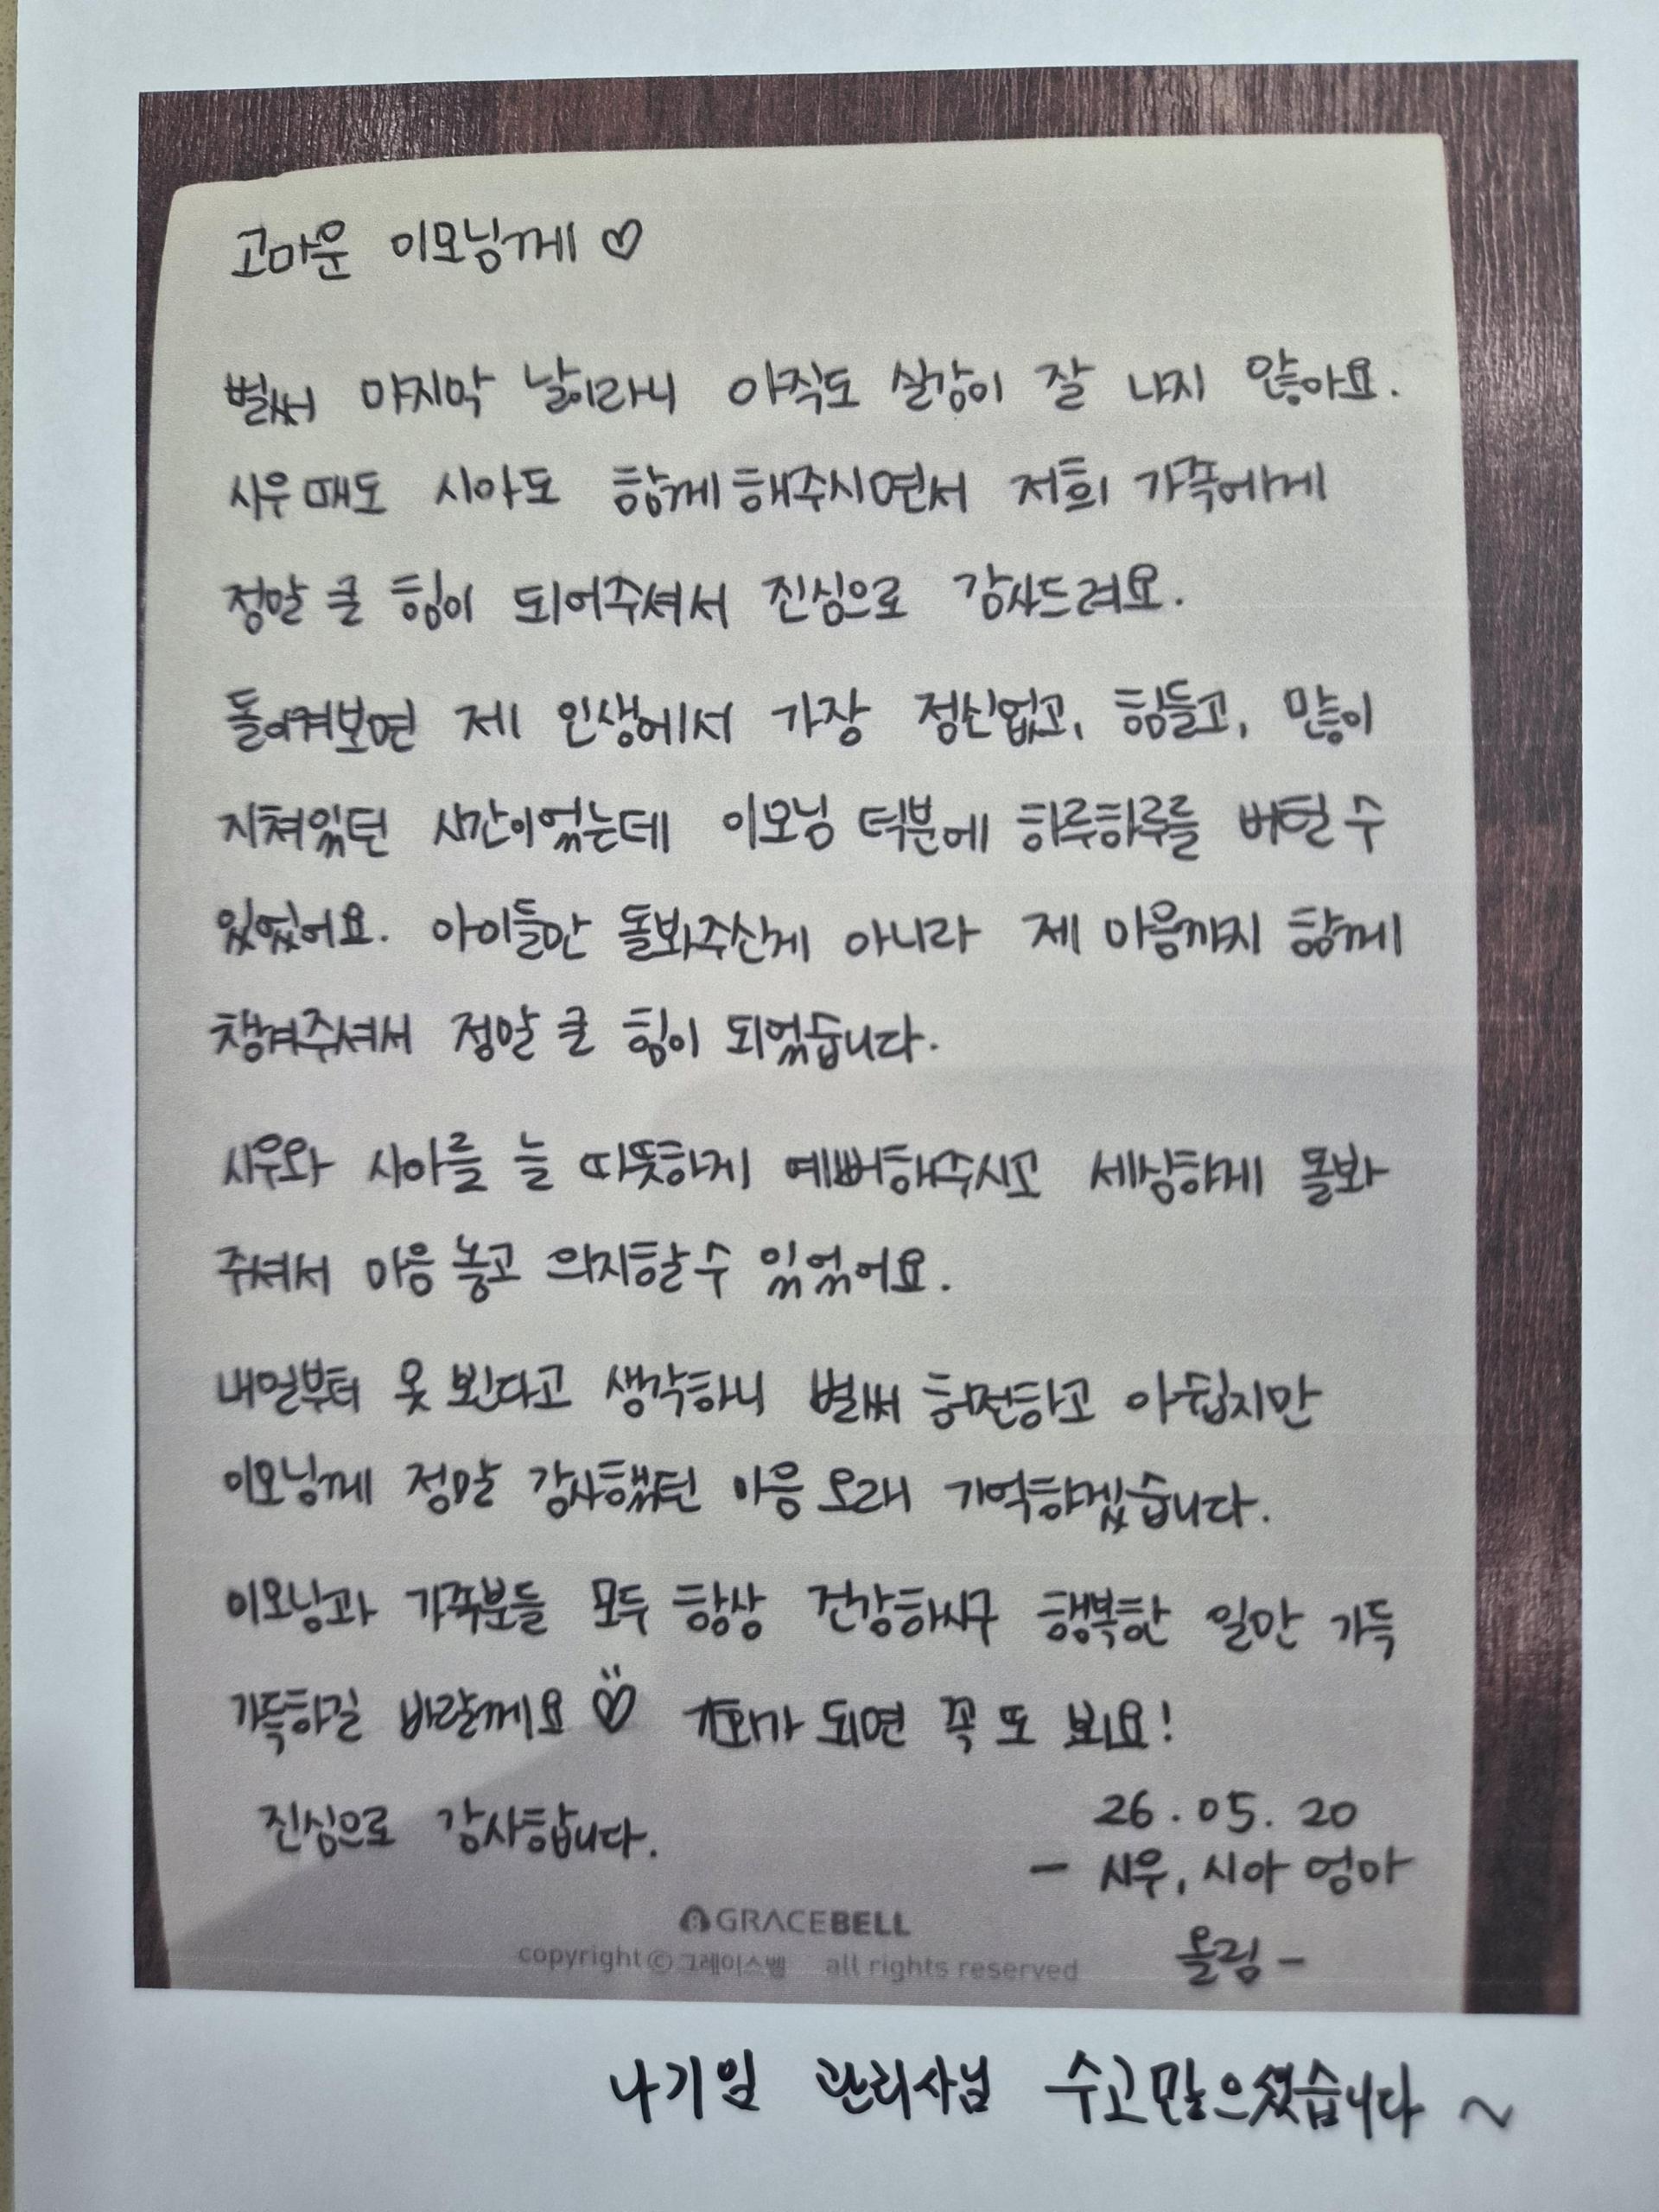 고마운 이모님께 ♡
벌써 마지막 날이라니 아직도 실감이 잘 나지 않아요.
시우때도 시아도 함께해주시면서 저희 가족에게
정말 큰 힘이 되어주셔서 진심으로 감사드려요.
돌이켜보면 제 인생에서 가장 정신없고, 힘들고, 많이
지쳐있던 시간이었는데 이모님 덕분에 하루하루를 버틸 수
있었어요. 아이들만 돌봐주신게 아니라 제 마음까지 함께
챙겨주셔서 정말 큰 힘이 되었습니다.
시우와 시아를 늘 따뜻하게 예뻐해주시고 세심하게 돌봐
주셔서 마음 놓고 의지할 수 있었어요.
내일부터 못 뵌다고 생각하니 벌써 허전하고 아쉽지만
이모님께 정말 감사했던 마음 오래 기억하겠습니다.
이모님과 가족분들 모두 항상 건강하시구 행복한 일만 가득
가득하길 바랄께요 ♡ 기회가 되면 꼭 또 뵈요!
진심으로 감사합니다.
26.05.20
- 시우, 시아 엄마
올림 -
GRACEBELL
copyright ⓒ 그레이스벨 all rights reserved
나기임 관리사님 수고많으셨습니다 ~